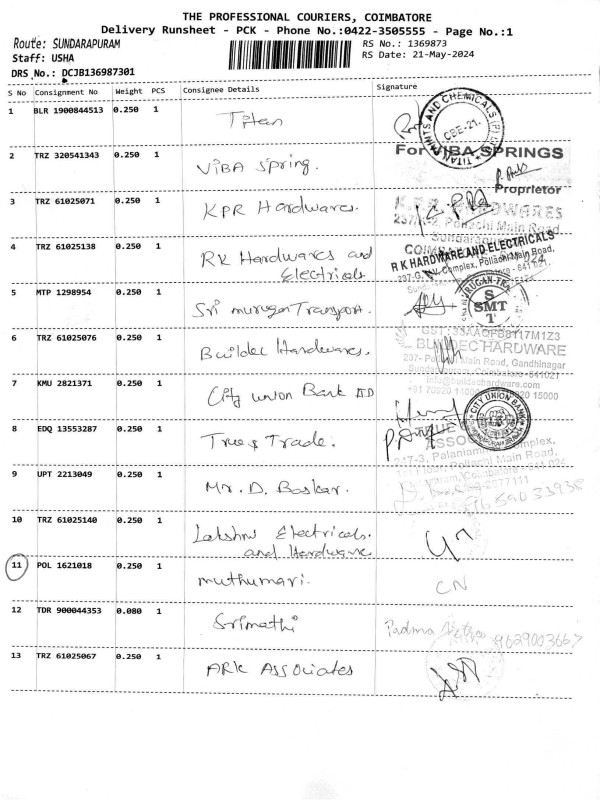 THE PROFESSIONAL COURIERS, COIMBATORE
Delivery Runsheet - PCK - Phone No.:0422-3505555 - Page No.:1
Route: SUNDARAPURAM
RS No.: 1369873
Staff: USHA
RS Date: 21-May-2024
DRS No.: DCJB136987301
S No Consignment No Weight PCS Consignee Details Signature
1 BLR 1900844513 0.250 1 Titan
TITAN PAINTS AND CHEMICALS (P)
CBE-21.
2 TRZ 320541343 0.250 1 VIBA Spring.
For VIBA SPRINGS
Proprietor
3 TRZ 61025071 0.250 1 KPR Hardwares.
HARDWARES
Pollachi Main Road
4 TRZ 61025138 0.250 1 RK Hardwares and
Electricals
R K HARDWARE AND ELECTRICALS
Complex, Pollachi Main Road,
5 MTP 1298954 0.250 1 Sri murugan Transport.
SMT
6 TRZ 61025076 0.250 1 Buildec Hardwares.
BUILDEC HARDWARE
Main Road, Gandhinagar
Coimbatore -641021
info@buildechardware.com
15000
7 KMU 2821371 0.250 1 City union Bank
CITY UNION BANK
8 EDQ 13553287 0.250 1 True & Trade.
TRUE
ASSOC
Complex,
Pollachi Main Road,
9 UPT 2213049 0.250 1 Mr. D. Baskar.
10 TRZ 61025140 0.250 1 Lakshmi Electricals.
and Hardware
11 POL 1621018 0.250 1 muthumari.
CN
12 TDR 900044353 0.080 1 Srimathi
Padma 9629003667
13 TRZ 61025067 0.250 1 ARK Associates